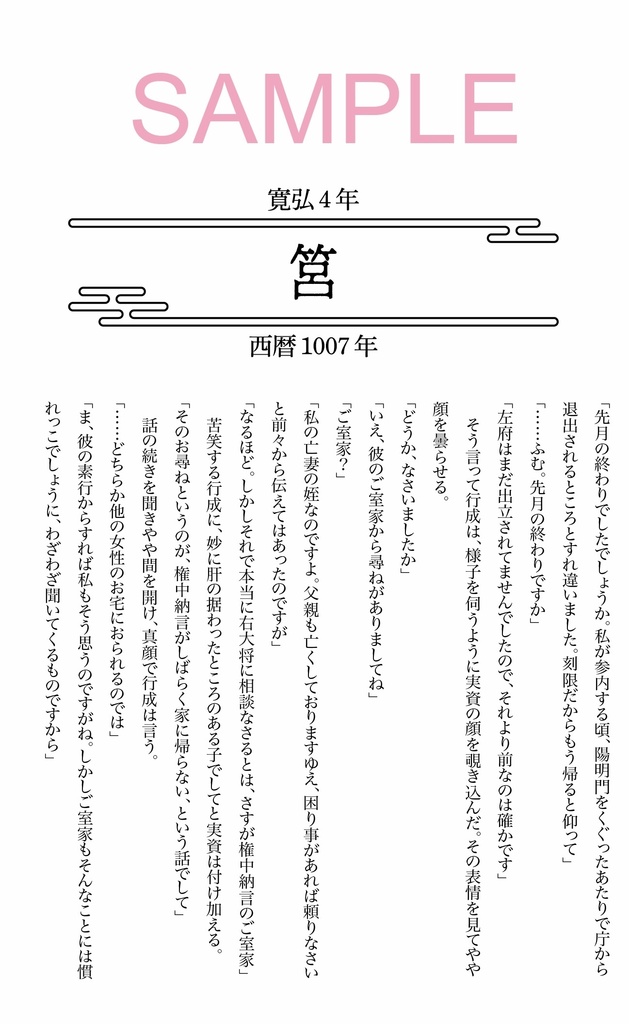 SAMPLE
寛弘4年
筥
西暦1007年
「先月の終わりでしたでしょうか。私が参内する頃、陽明門をくぐったあたりで庁から
退出されるところとすれ違いました。刻限だからもう帰ると仰って」
「……ふむ。先月の終わりですか」
「左府はまだ出立されてませんでしたので、それより前なのは確かです」
そう言って行成は、様子を伺うように実資の顔を覗き込んだ。その表情を見てやや
顔を曇らせる。
「どうか、なさいましたか」
「いえ、彼のご室家から尋ねがありましてね」
「ご室家？」
「私の亡妻の姪なのですよ。父親も亡くしておりますゆえ、困り事があれば頼りなさい
と前々から伝えてはあったのですが」
「なるほど。しかしそれで本当に右大将に相談なさるとは、さすが権中納言のご室家」
苦笑する行成に、妙に肝の据わったところのある子でしてと実資は付け加える。
「そのお尋ねというのが、権中納言がしばらく家に帰らない、という話でして」
話の続きを聞きやや間を開け、真顔で行成は言う。
「……どちらか他の女性のお宅におられるのでは」
「ま、彼の素行からすれば私もそう思うのですがね。しかしご室家もそんなことには慣
れっこでしょうに、わざわざ聞いてくるものですから」